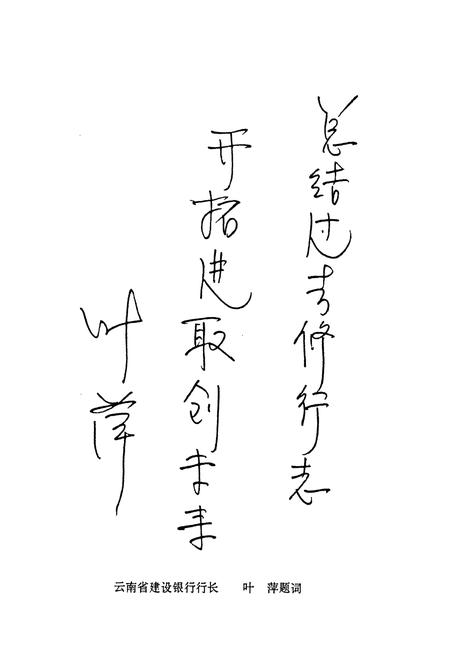 总结过去修行志
开拓进取创未来
叶萍
云南省建设银行行长　　叶　萍题词